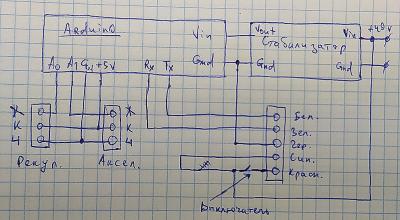 Arduino
Vin
Gnd
A0 A1 Gnd +5V Rx Tx
Vout
Стабилизатор
Vin
Gnd
Gnd
+48V
Ж
К
Ч
Рекуп.
Ж
К
Ч
Аксел.
Бел.
Зел.
Чер.
Син.
Красн.
Выключатель